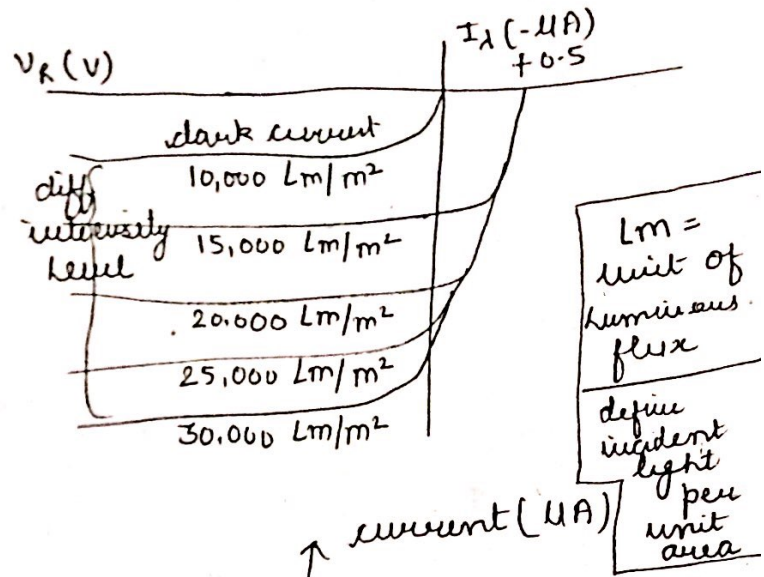 I λ (-μA)
+0.5
VR (V)
dark current
10,000 Lm/m²
diff
intensity
Level
15,000 Lm/m²
20,000 Lm/m²
25,000 Lm/m²
30,000 Lm/m²
Lm =
unit of
Luminious
flux
define
incident
light
per
unit
area
↑ current (μA)